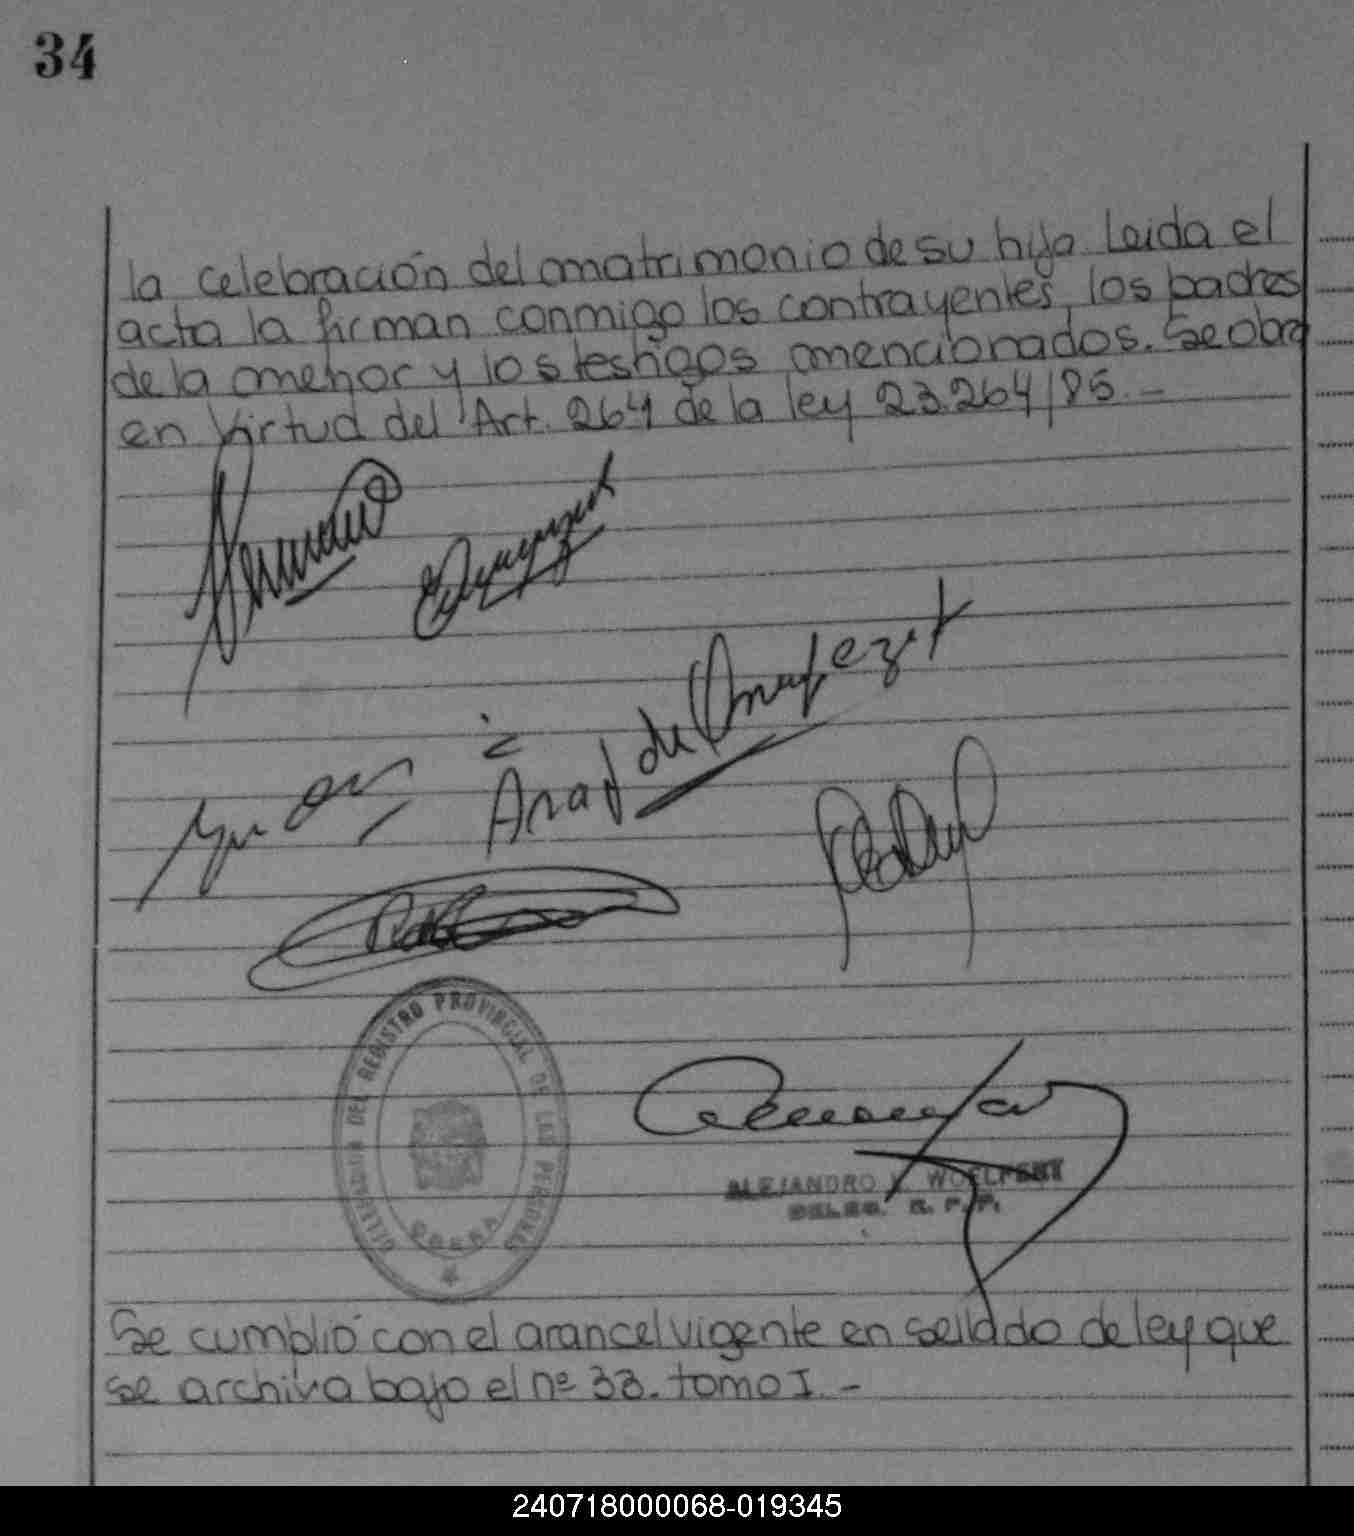 34
la celebración del matrimonio de su hija. Leida el
acta la firman conmigo los contrayentes, los padres
de la menor y los testigos mencionados. Se obra
en virtud del Art. 264 de la ley 23.264/85. -
Ana
de
DELEGACION DEL REGISTRO PROVINCIAL DE LAS PERSONAS
OBERA
ALEJANDRO WOELFERT
DELEG. R. P. P.
Se cumplió con el arancel vigente en sellado de ley que
se archiva bajo el nº 33. tomo I. -
240718000068-019345